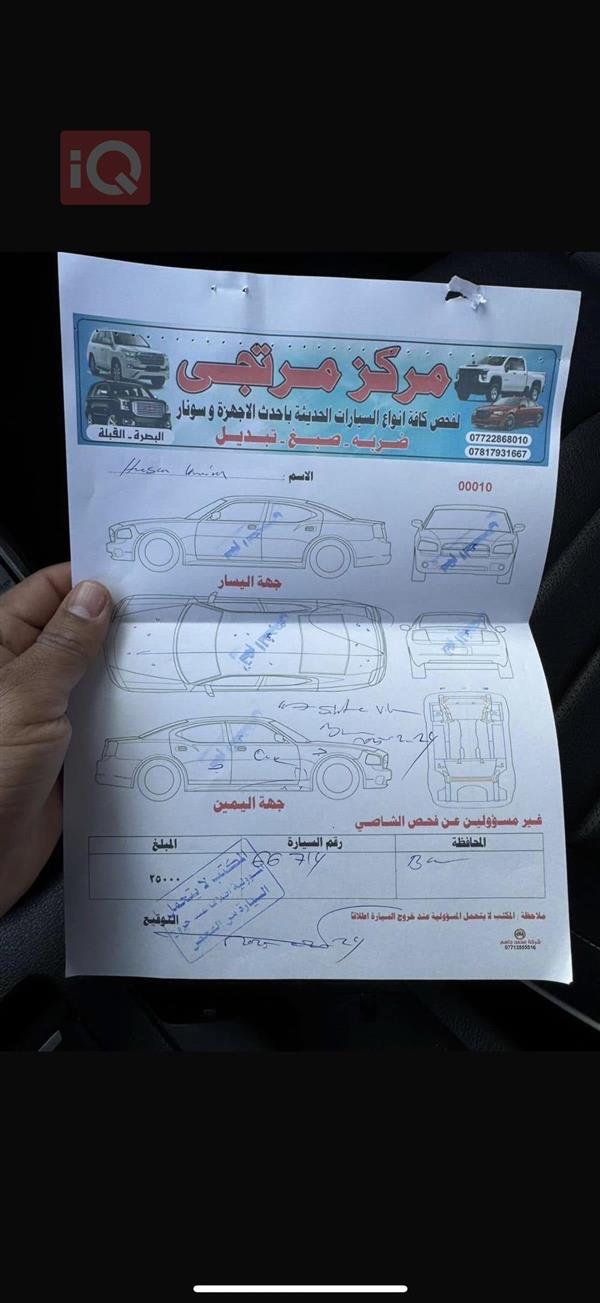 iQ
مركز مرتجى
لفحص كافة انواع السيارات الحديثة باحدث الاجهزة و سونار
ضربه - صبغ - تبديل
البصرة - القبلة
07722868010
07817931667
الاسم :
00010
جهة اليسار
جهة اليمين
غير مسؤولين عن فحص الشاصي
المحافظة
رقم السيارة
المبلغ
66 714
٢٥٠٠٠
ملاحظة : المكتب لا يتحمل المسؤولية عند خروج السيارة اطلاقا
التوقيع
المكتب لا يتحمل
السيارة من الفحص
شركة محمد جاسم